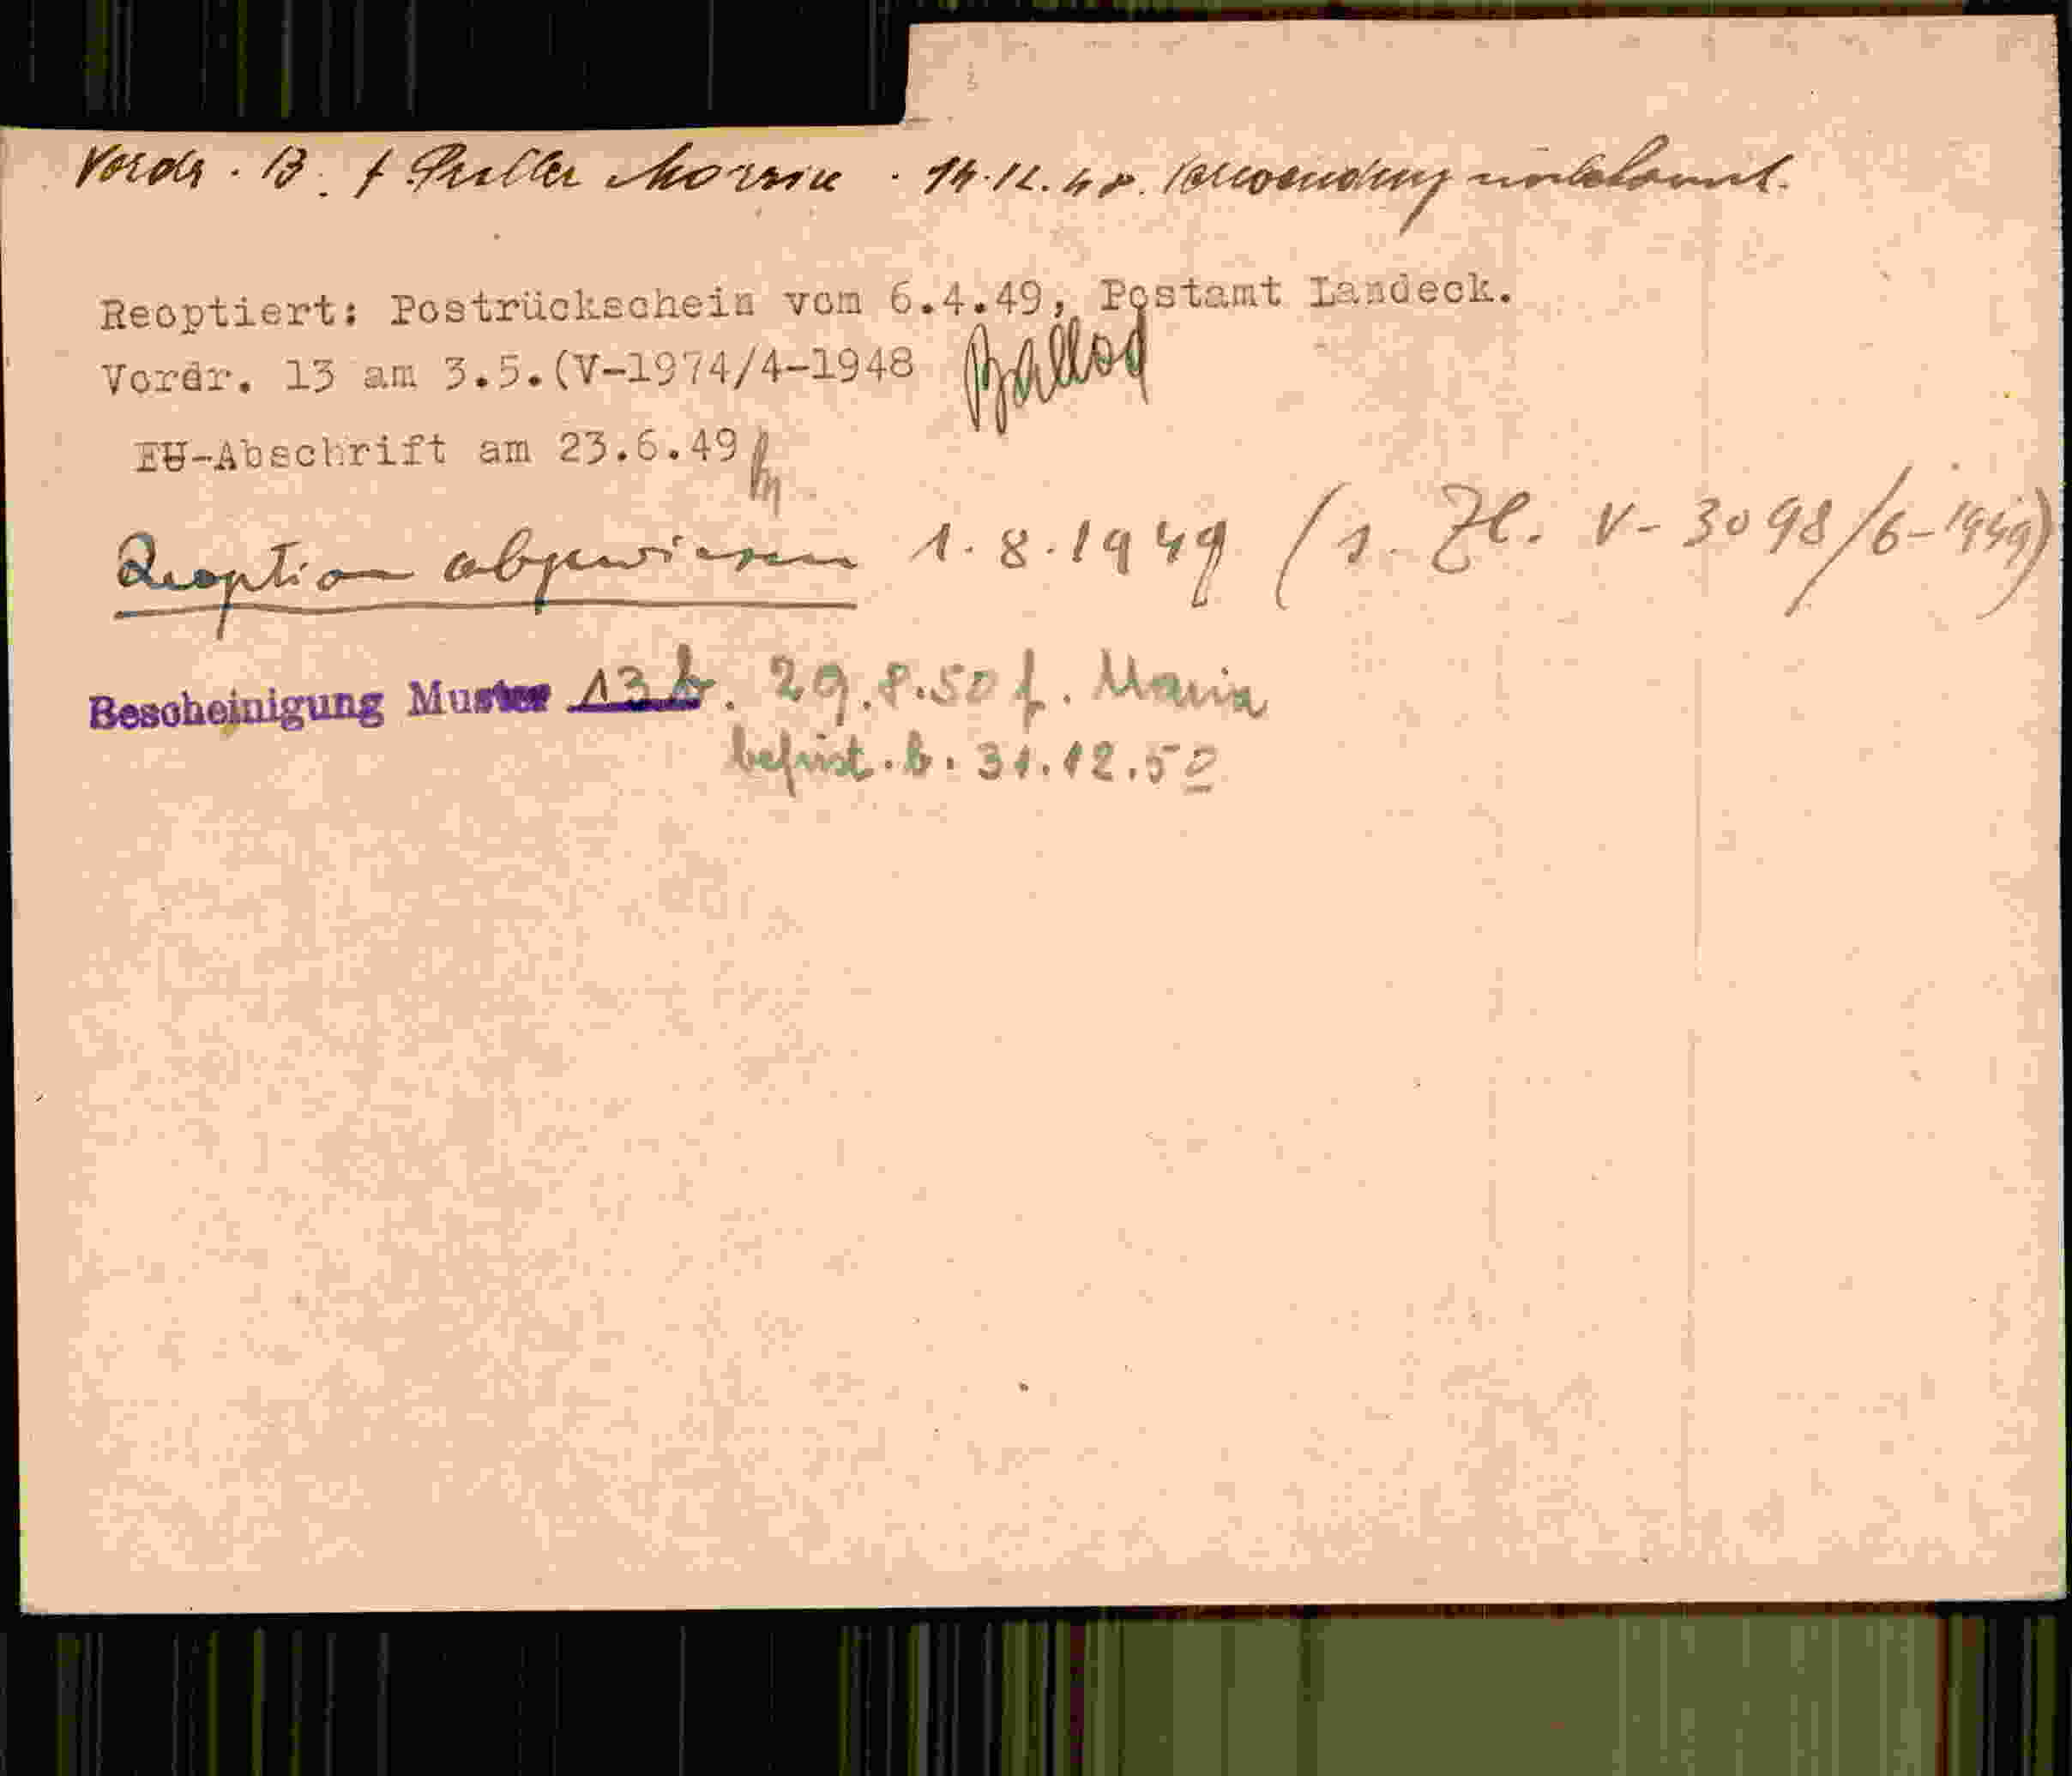 Vordr. 13. f. Maria. 14.12.48. Verwendung unbekannt.
Reoptiert: Postrückschein vom 6.4.49, Postamt Landeck.
Vordr. 13 am 3.5.(V-1974/4-1948
EU-Abschrift am 23.6.49
Reoption abgewiesen 1.8.1949 (s. Zl. V-3098/6-1949)
Bescheinigung Muster 13 b. 29.8.50 f. Maria
befrist. b. 31.12.50